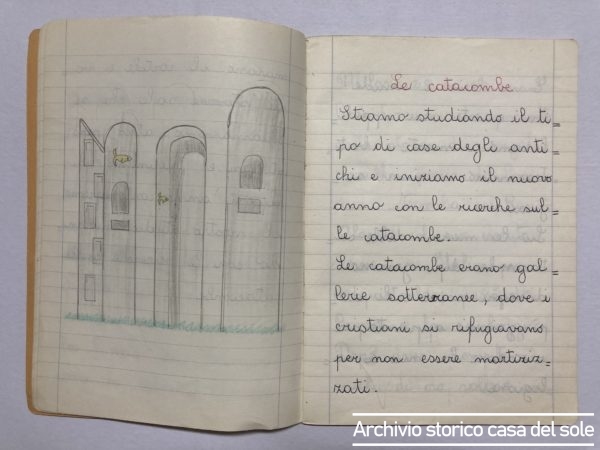 Le catacombe
Stiamo studiando il ti=
po di case degli anti=
chi e iniziamo il nuovo
anno con le ricerche sul=
le catacombe.
Le catacombe erano gal=
lerie sotterranee, dove i
cristiani si rifugiavano
per non essere martiriz=
zati.
Archivio storico casa del sole